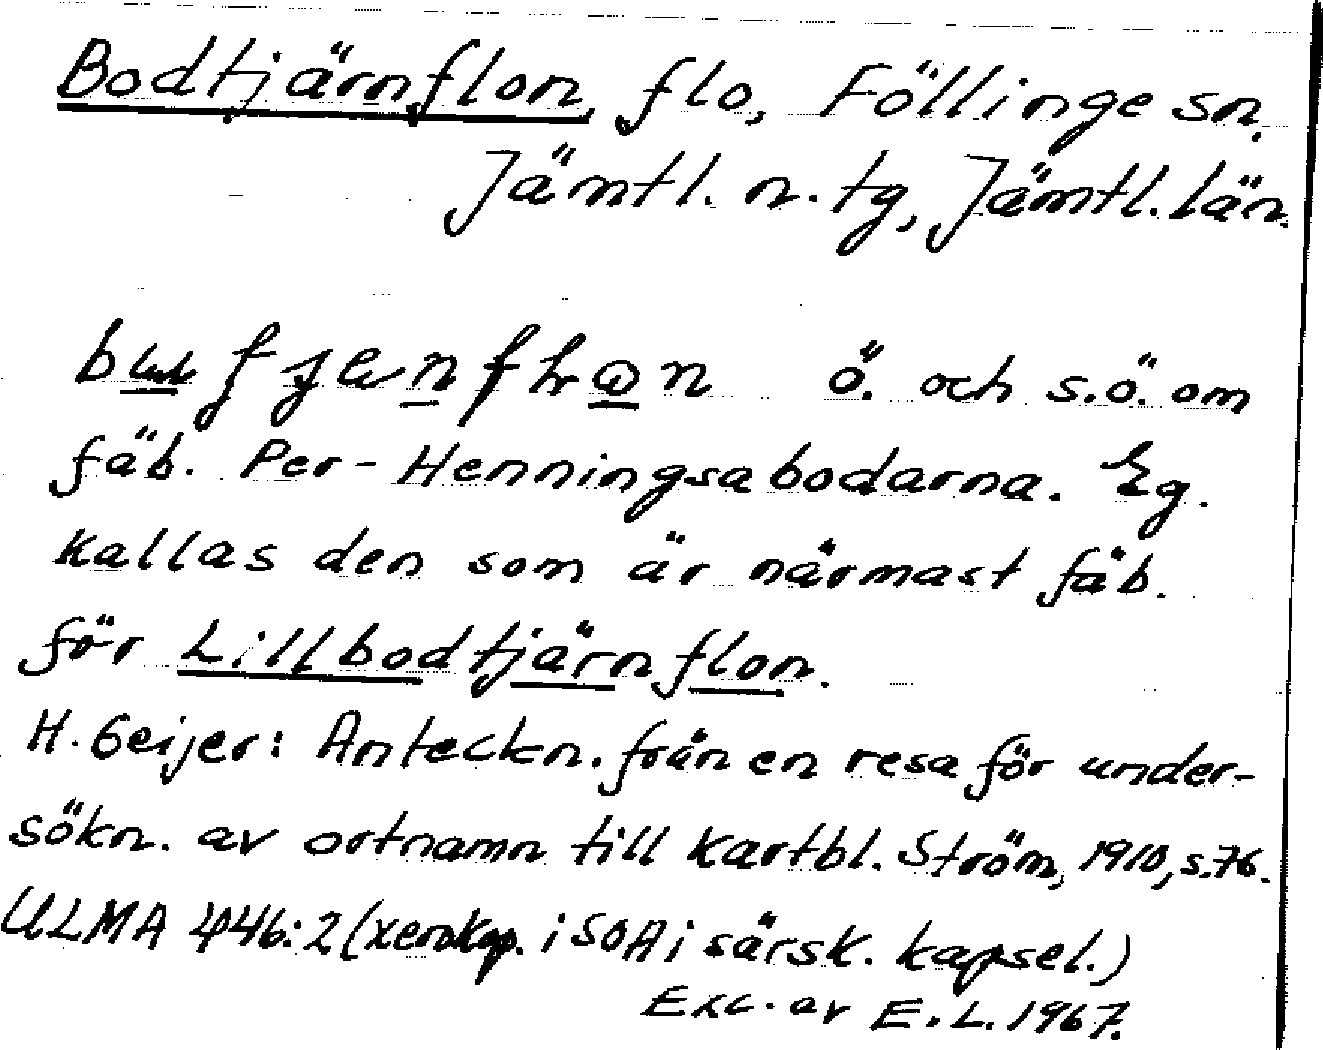 Bodtjärnflon, flo, Föllinge sn.
Jämtl. n. tg, Jämtl. län.
ö. och s.ö. om
fäb. Per-Henningsabodarna. Eg.
kallas den som är närmast fäb.
för Lillbodtjärnflon.
H. Geijer: Anteckn. från en resa för under-
sökn. av ortnamn till kartbl. Ström, 1910, s. 76.
ULMA 446:2 (xerokop. i SOA i särsk. kapsel.)
Exc. av E. L. 1967.